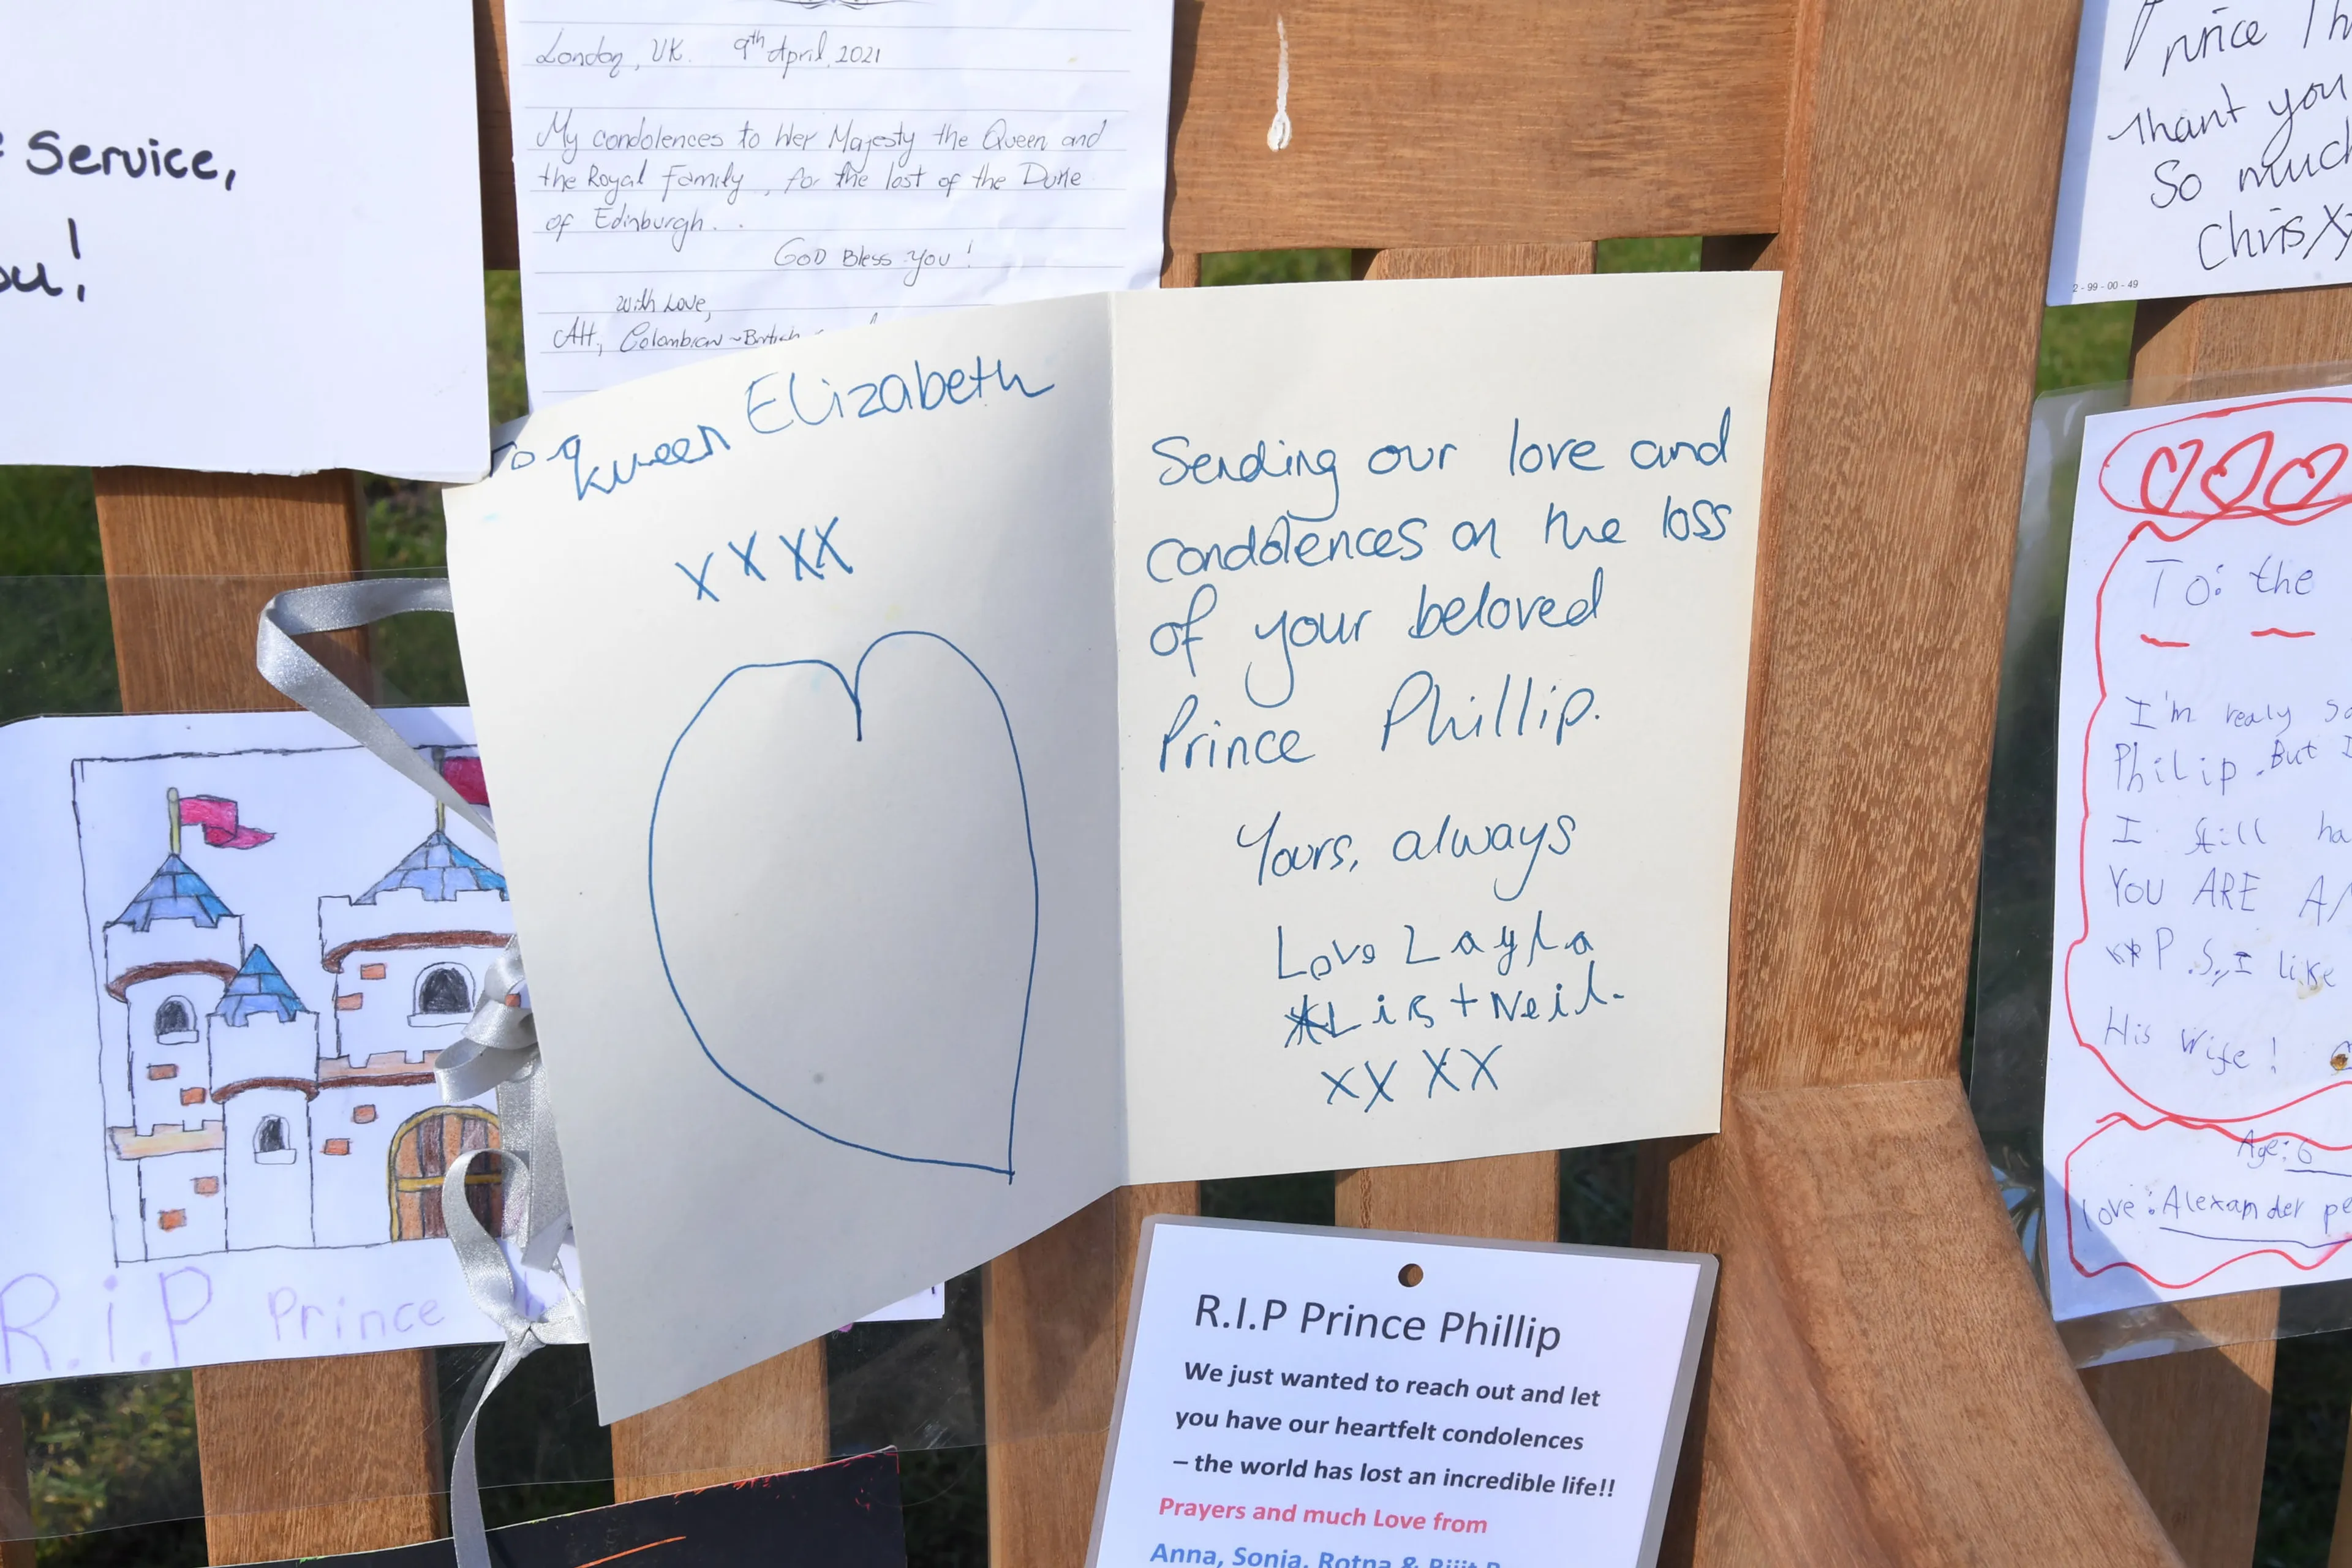 Service,
ou!
London, UK. 9th April, 2021
My condolences to Her Majesty the Queen and
the Royal Family, for the lost of the Duke
of Edinburgh...
GOD Bless You!
with Love,
AH, Colombian ~ British
To Queen Elizabeth
x x x x
Sending our love and
condolences on the loss
of your beloved
Prince Phillip.
Yours, always
Love Layla
Lis + Neil.
xx xx
R.i.P Prince
R.I.P Prince Phillip
We just wanted to reach out and let
you have our heartfelt condolences
– the world has lost an incredible life!!
Prayers and much Love from
Anna, Sonia, Rotna &
Prince
Thank you
So much
Chris
2 - 99 - 00 - 49
To: the
I'm realy
Philip. But I
I still ha
YOU ARE
P.S, I like
His Wife!
Age: 6
Love: Alexander